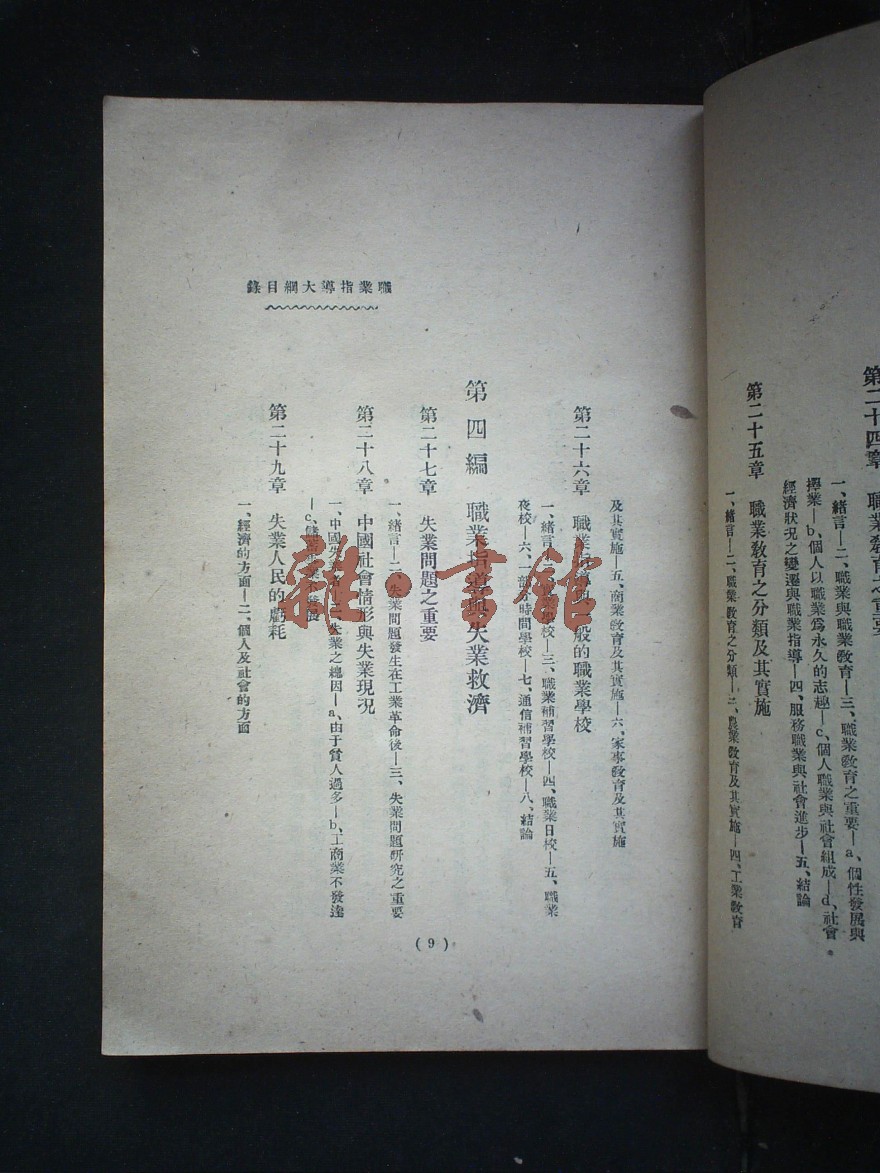 第二十四章 職業教育之重要
一、緒言—二、職業與職業教育—三、職業教育之重要—a、個性發展與
擇業—b、個人以職業爲永久的志趣—c、個人職業與社會組成—d、社會
經濟狀況之變遷與職業指導—四、服務職業與社會進步—五、結論
第二十五章 職業教育之分類及其實施
一、緒言—二、職業教育之分類—三、農業教育及其實施—四、工業教育
職業指導大綱目錄
及其實施—五、商業教育及其實施—六、家事教育及其實施
第二十六章 職業指導與一般的職業學校
一、緒言—二、職業學校—三、職業補習學校—四、職業日校—五、職業
夜校—六、一部分時間學校—七、通信補習學校—八、結論
第四編 職業指導與失業救濟
第二十七章 失業問題之重要
一、緒言—二、失業問題發生在工業革命後—三、失業問題研究之重要
第二十八章 中國社會情形與失業現況
一、中國失業—二、失業之總因—a、由于貧人過多—b、工商業不發達
—c、業不發展
第二十九章 失業人民的虧耗
一、經濟的方面—二、個人及社會的方面
(9)
雜·書館